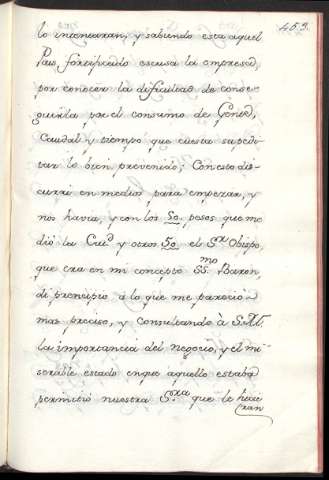 453.
lo intentaran, y sabiendo esta aquel
Pais fortificado escusa la empresa,
por conocer la dificultad de conse-
guirla por el consumo de Gente,
Caudal y tiempo que cuesta supedi-
tar lo bien prevenido; Con esto dis-
curri en medios para empezar, y
nos havia, y con los 50. pesos que me
dió la Ciu.ᵈ y otros 50. el S.ᵒʳ Obispo,
que era en mi concepto SS.ᵐᵒ Baron
di principio à lo que me pareció
mas preciso, y consultando à S.M.
la importancia del negocio, y el mi-
serable estado en que aquello estaba
permitió nuestra S.ʳᵃ que le hicie
ran